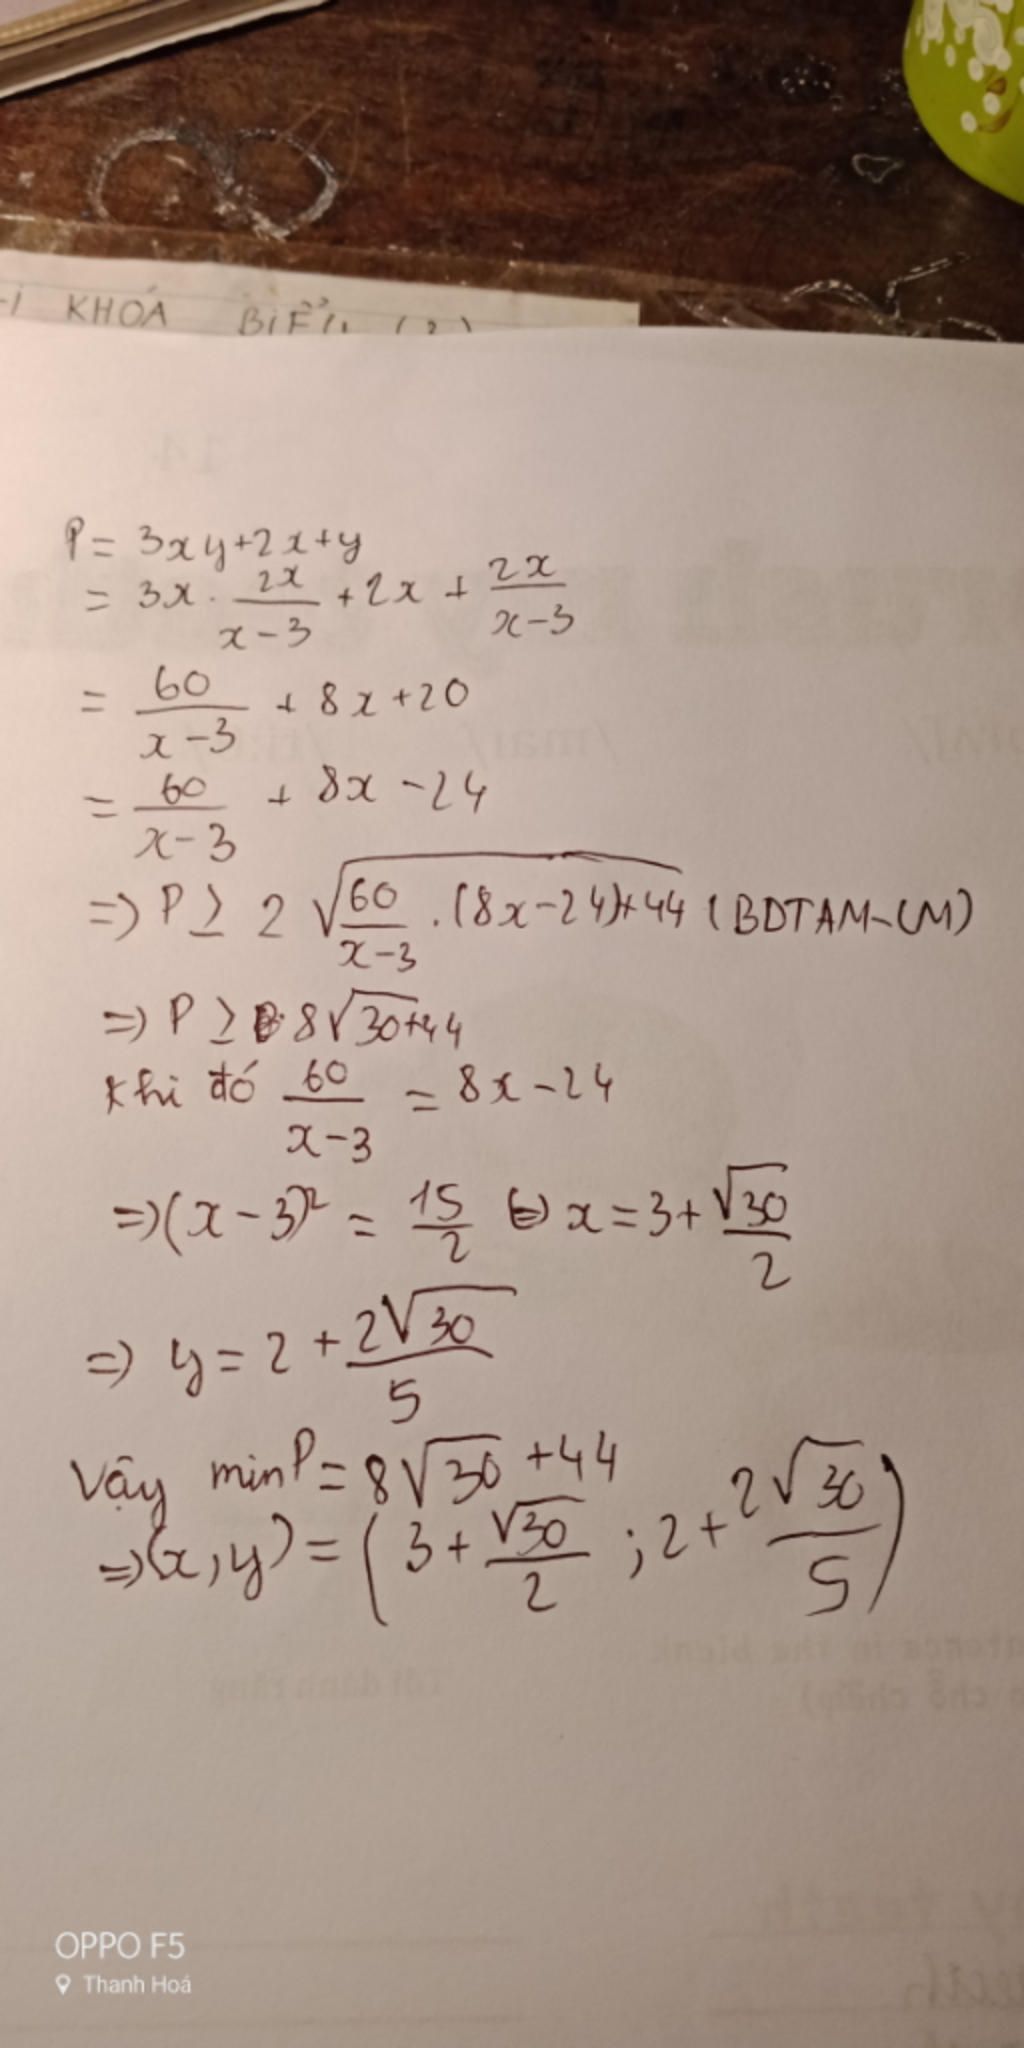 KHOÁ BIỂU (2)
14
P = 3xy + 2x + y
= 3x . 2x/(x-3) + 2x + 2x/(x-3)
= 60/(x-3) + 8x + 20
= 60/(x-3) + 8x - 24
=> P ≥ 2 √(60/(x-3) . (8x-24)+44) (BDTAM-GM)
=> P ≥ 8√30+44
Khi đó 60/(x-3) = 8x - 24
=> (x-3)² = 15/2 <=> x = 3 + √30/2
=> y = 2 + 2√30/5
Vậy minP = 8√30 + 44
=> (x,y) = (3 + √30/2 ; 2 + 2√30/5)
OPPO F5
Thanh Hoá